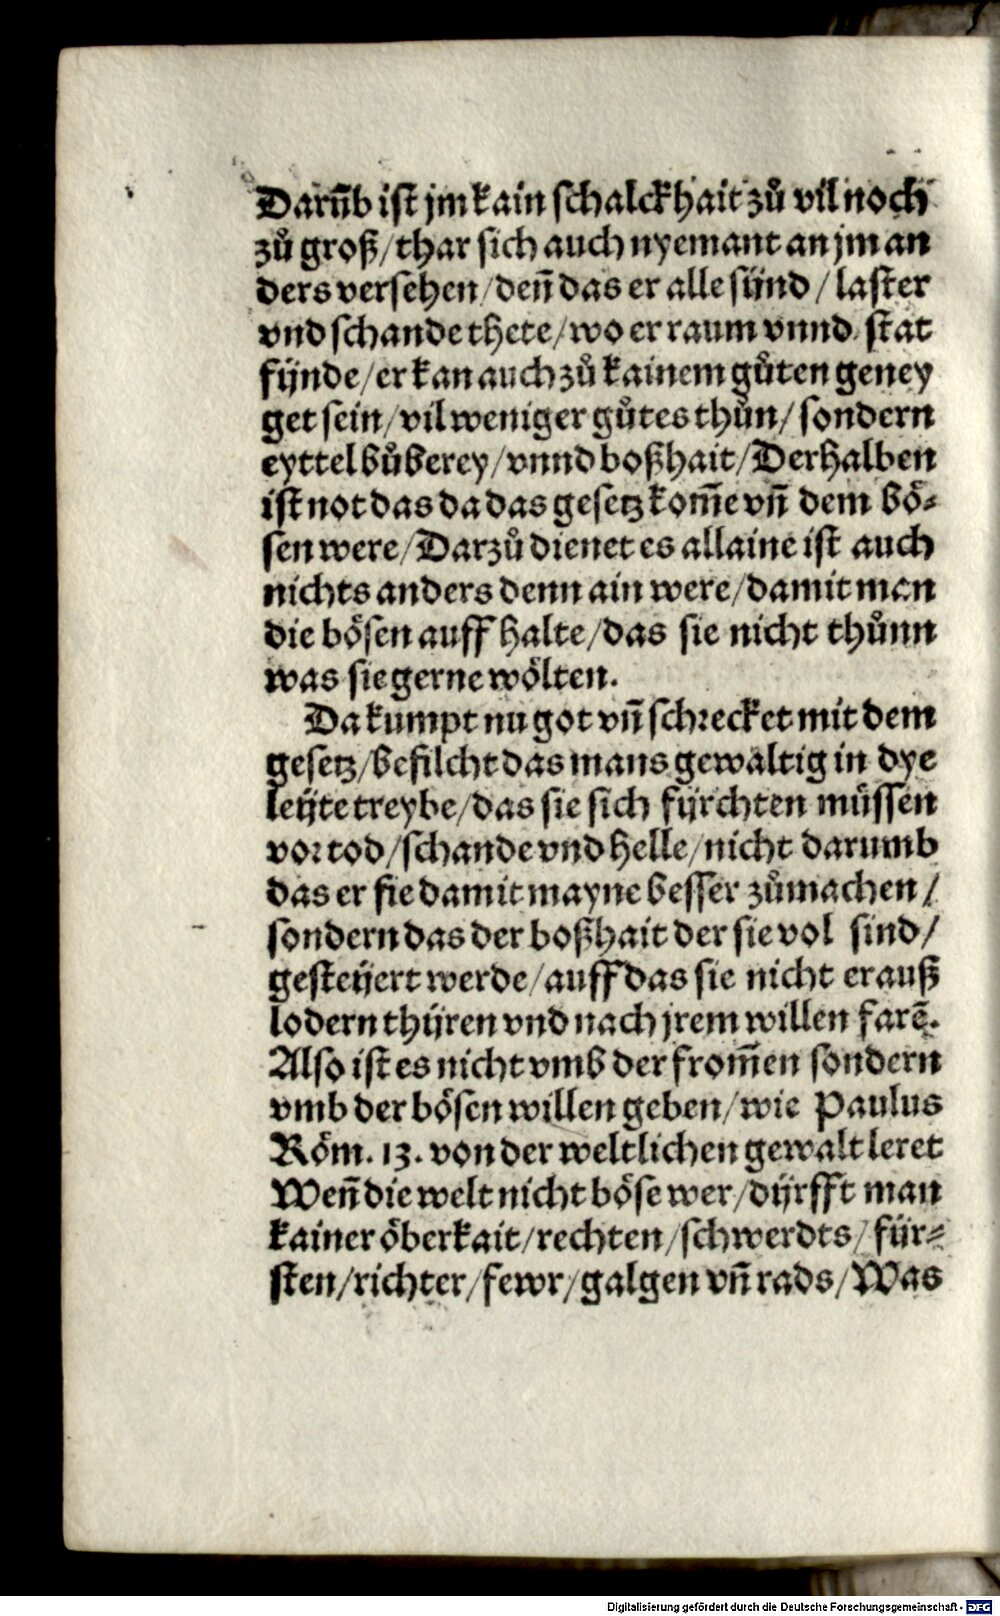 Darum̃b ist jm kain schalckhait zů vil noch
zů groß/ thar sich auch nyemant an jm an
ders versehen/ deñ das er alle sünd / laster
vnd schande thete/ wo er raum vnnd stat
fünde/ er kan auch zů kainem gůten geney
get sein/ vil weniger gůtes thůn/ sondern
eyttel bůberey/ vnnd boßhait/ Derhalben
ist not das da das gesetz kom̃e vñ dem bö-
sen were/ Darzů dienet es allaine ist auch
nichts anders denn ain were/ damit man
die bösen auff halte/ das sie nicht thůnn
was sie gerne wölten.
Da kumpt nu got vñ schrecket mit dem
gesetz/ befilcht das mans gewaltig in dye
leüte treybe/ das sie sich fürchten müssen
vor tod/ schande vnd helle/ nicht darumb
das er sie damit mayne besser zůmachen /
sondern das der boßhait der sie vol sind/
gesteüert werde/ auff das sie nicht erauß
lodern thüren vnd nach jrem willen farē.
Also ist es nicht vmb der from̃en sondern
vmb der bösen willen geben/ wie Paulus
Röm. 13. von der weltlichen gewalt leret
Weñ die welt nicht böse wer/ dürfft man
kainer öberkait/ rechten/ schwerdts/ für-
sten/ richter/ fewr/ galgen vñ rads/ Was
Digitalisierung gefördert durch die Deutsche Forschungsgemeinschaft - DFG